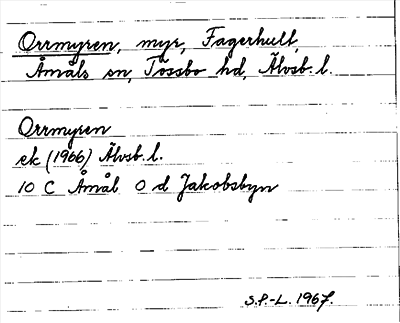 Orrmyren, myr, Fagerhult,
Åmåls sn, Tössbo hd, Älvsb. l.
Orrmyren
ek (1966) Älvsb. l.
10 C Åmål O d Jakobsbyn
S.P.-L. 1967.